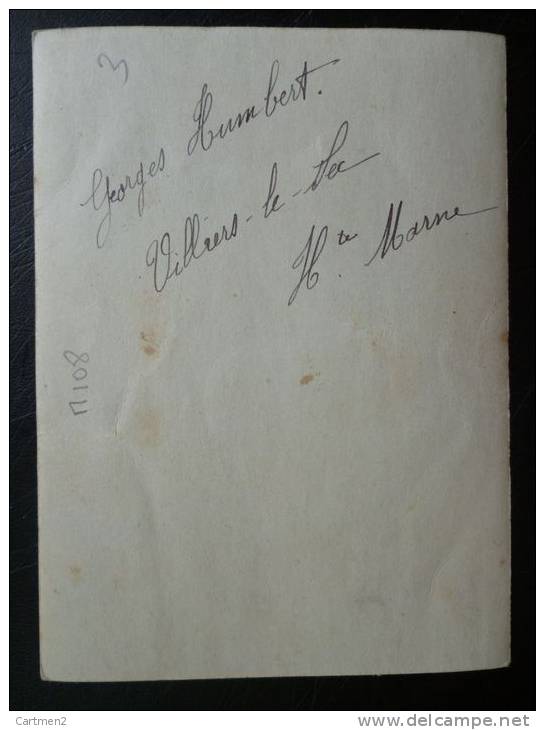 3
Georges Humbert.
Villiers-le-Sec
Hte Marne
M108
Cartmen2
www.delcampe.net